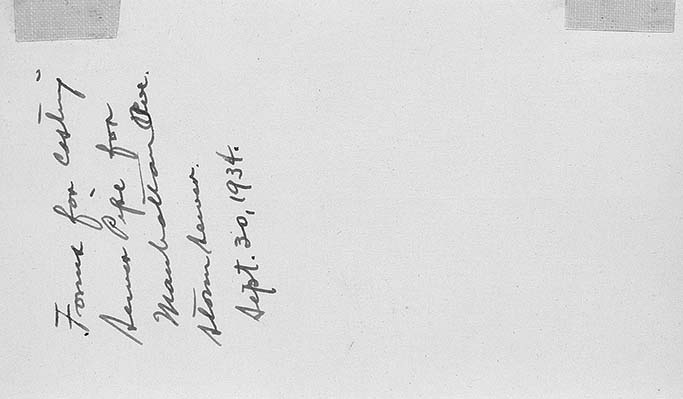 Forms for casting
Sewer Pipe for
Manhattan Ave.
storm sewer.
Sept. 30, 1934.